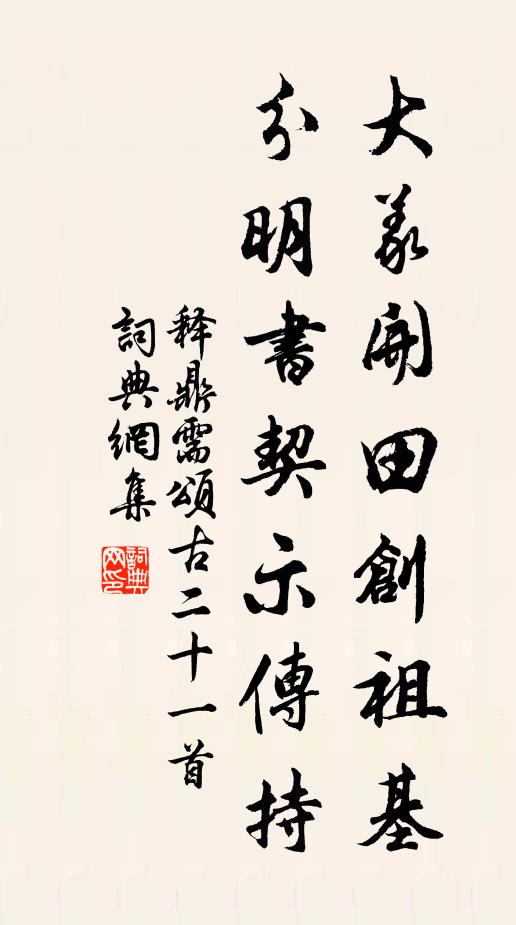 大義開田創祖基
分明書契示傳持
释鼎需頌古二十一首
詞典網集
詞典网印